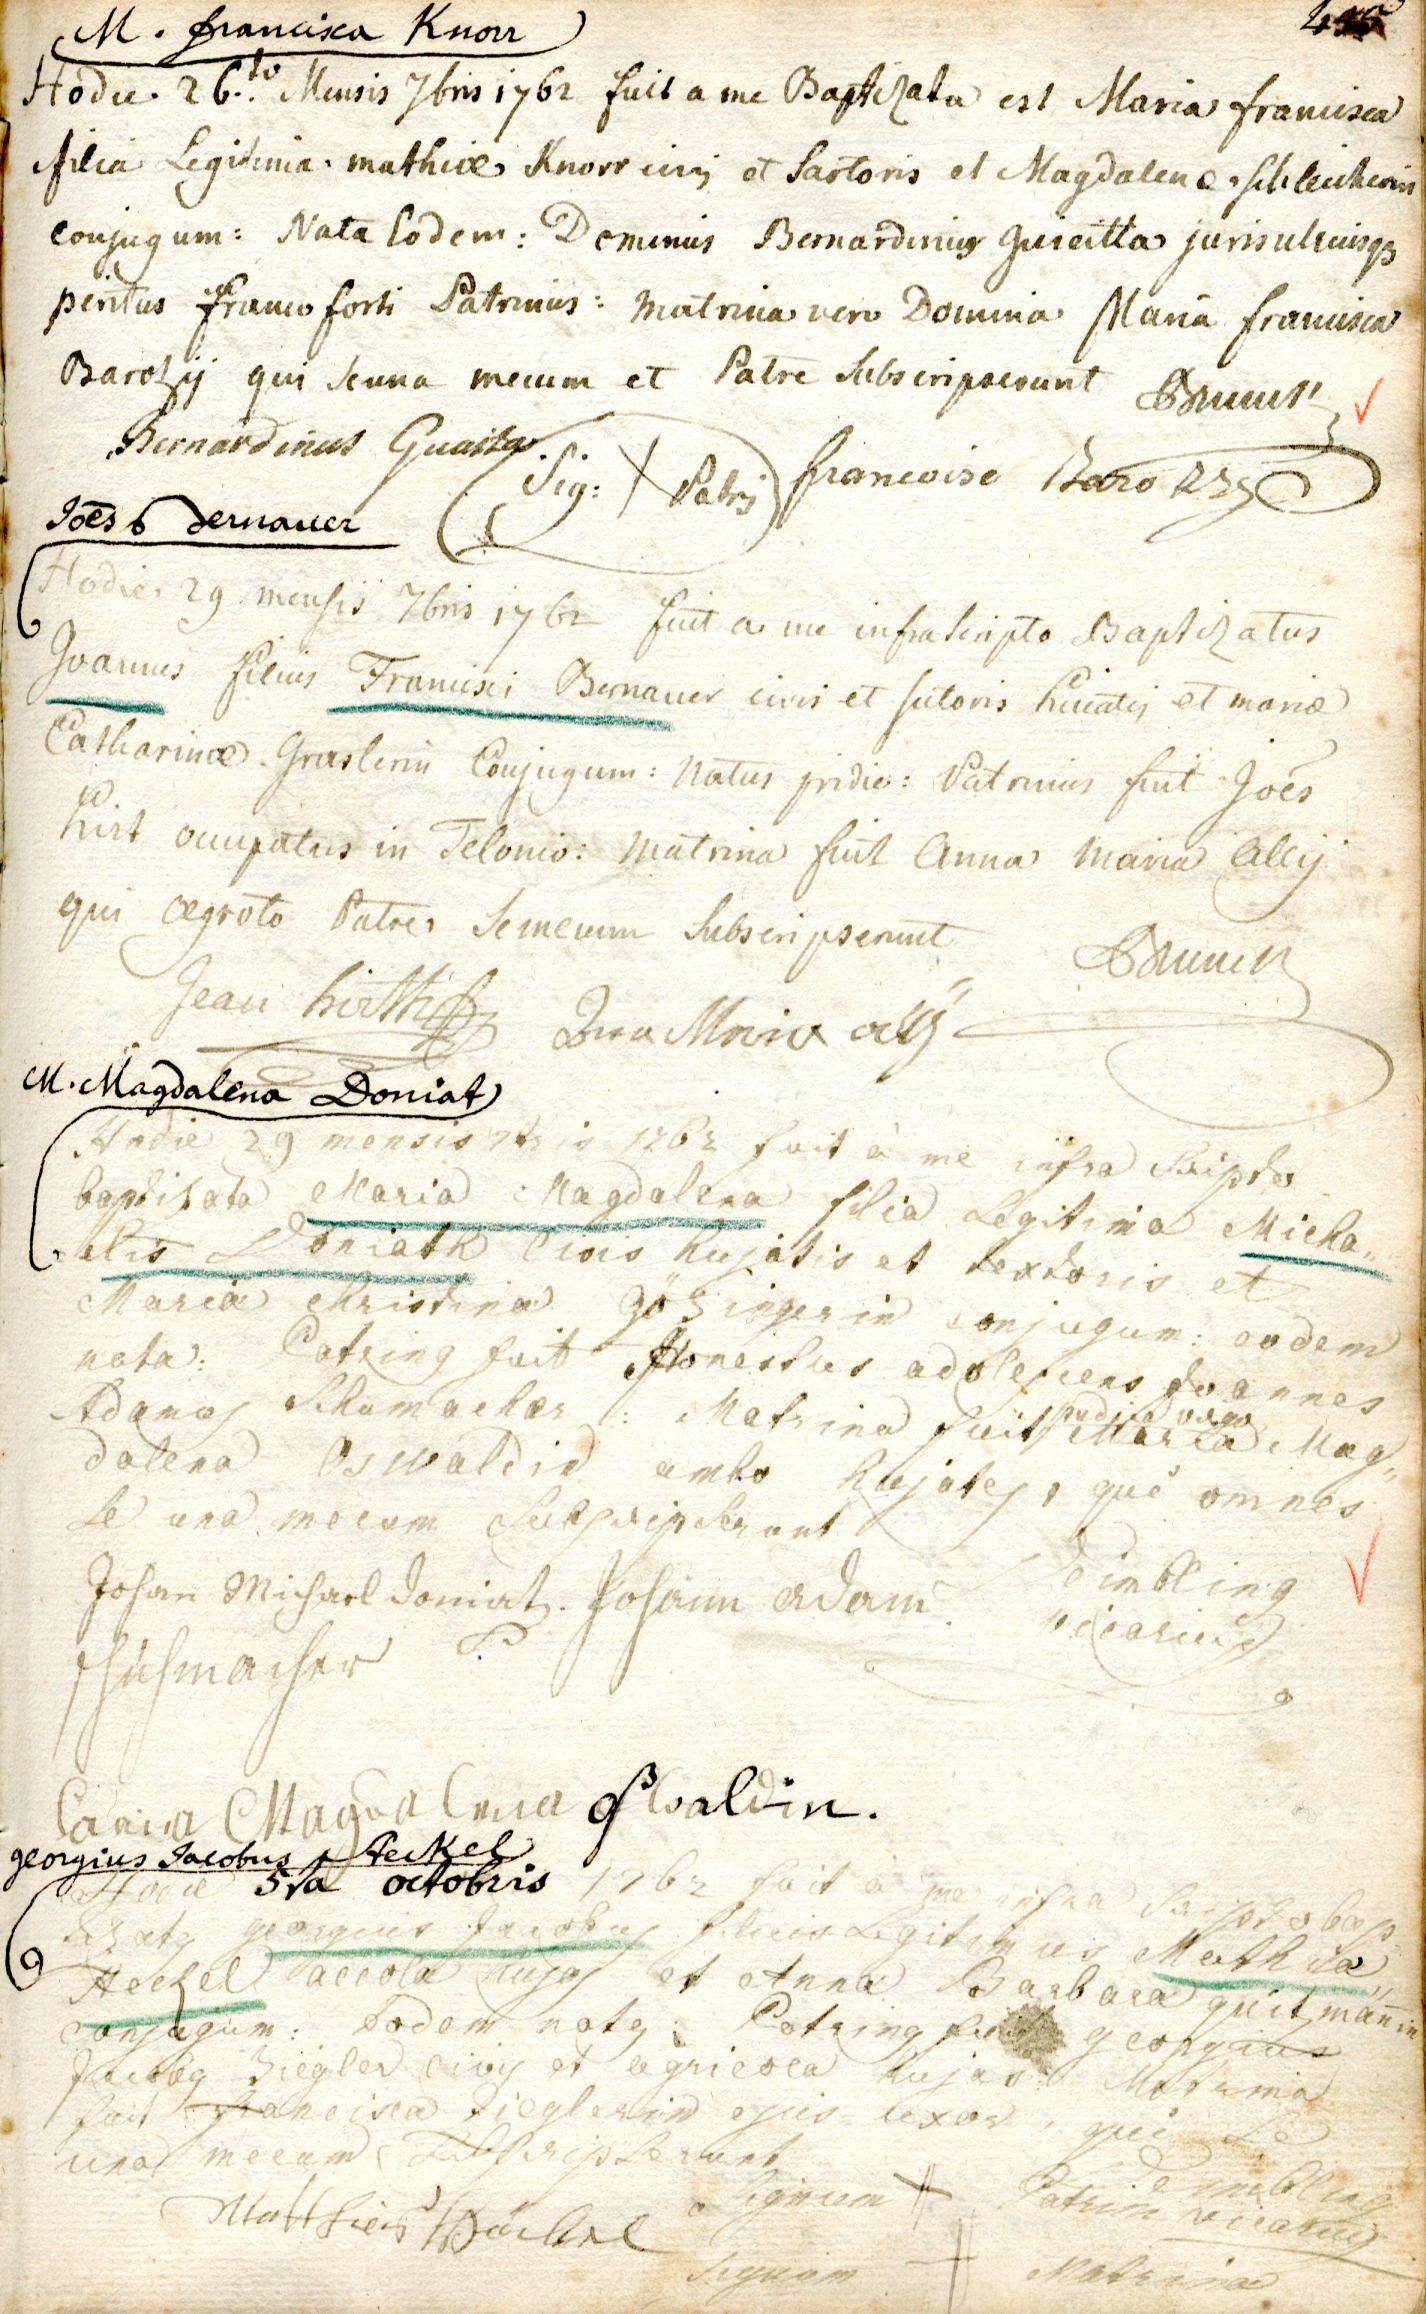 M. francisca Knorr
Hodie 26.to Mensis 7bris 1762 fuit a me Baptizata est Maria francisca
filia Legitima mathiæ Knorr civis et Sartoris et Magdalenæ Schleicherin
conjugum: Nata Eodem: Dominus Bernardinus Guaitta juris utriusq3
peritus francoforti Patrinus: Matrina vero Domina Maria francisca
Barozij qui se una mecum et Patre Subscripserunt
Bernardinus Guaita Sig: X Patris francoise Barozzy
Joēs Bernauer
Hodie 29 mensis 7bris 1762 fuit a me infrascripto Baptizatus
Joannes filius Francisci Bernauer civis et sutoris huiatis et mariæ
Catharinæ Graslerin Conjugum: Natus pridie: Patrinus fuit Joēs
hirt occupatus in Telonio: Matrina fuit Anna Maria Allij
qui ægroto Patre se mecum Subscripserunt
Jean hirth Anna Maria allÿ
M. Magdalena Doniat
Hodie 29 mensis 7bris 1762 fuit à me infra Scripto
baptizata Maria Magdalena filia Legitima Micha„
elis Doniath civis hujatis et textoris et
Maria Christina gözingerin conjugum: eodem
nata: Patring fuit Honestus adolescens Joannes
Adamus Schumacher: Matrina fuit pudica virgo Maria Mag„
dalena Oswaldin ambo hujates, qui omnes
se una mecum Subscripserunt
Johan Michael Doniat. Johann adam Dimbling
schuhmacher vicarius
Maria Magdalena Oßwaldin.
georgius Jacobus Heckel
Hodie 5ta octobris 1762 fuit à me infra Scripto bap
tizatq georgius Jacobus filius Legitimus Mathiæ
Heckel accola hujas et Anna Barbara guitmānin
conjugum: Eodem natq: Patring fuit georgius
Jacobq Ziegler civis et agricola hujas: Matrina
fuit francisca Zieglerin ejus uxor, qui se
una mecum Subscripserunt Dimbling
Matthies Häckel Signum + Patrini vicarius
Signum + Matrina